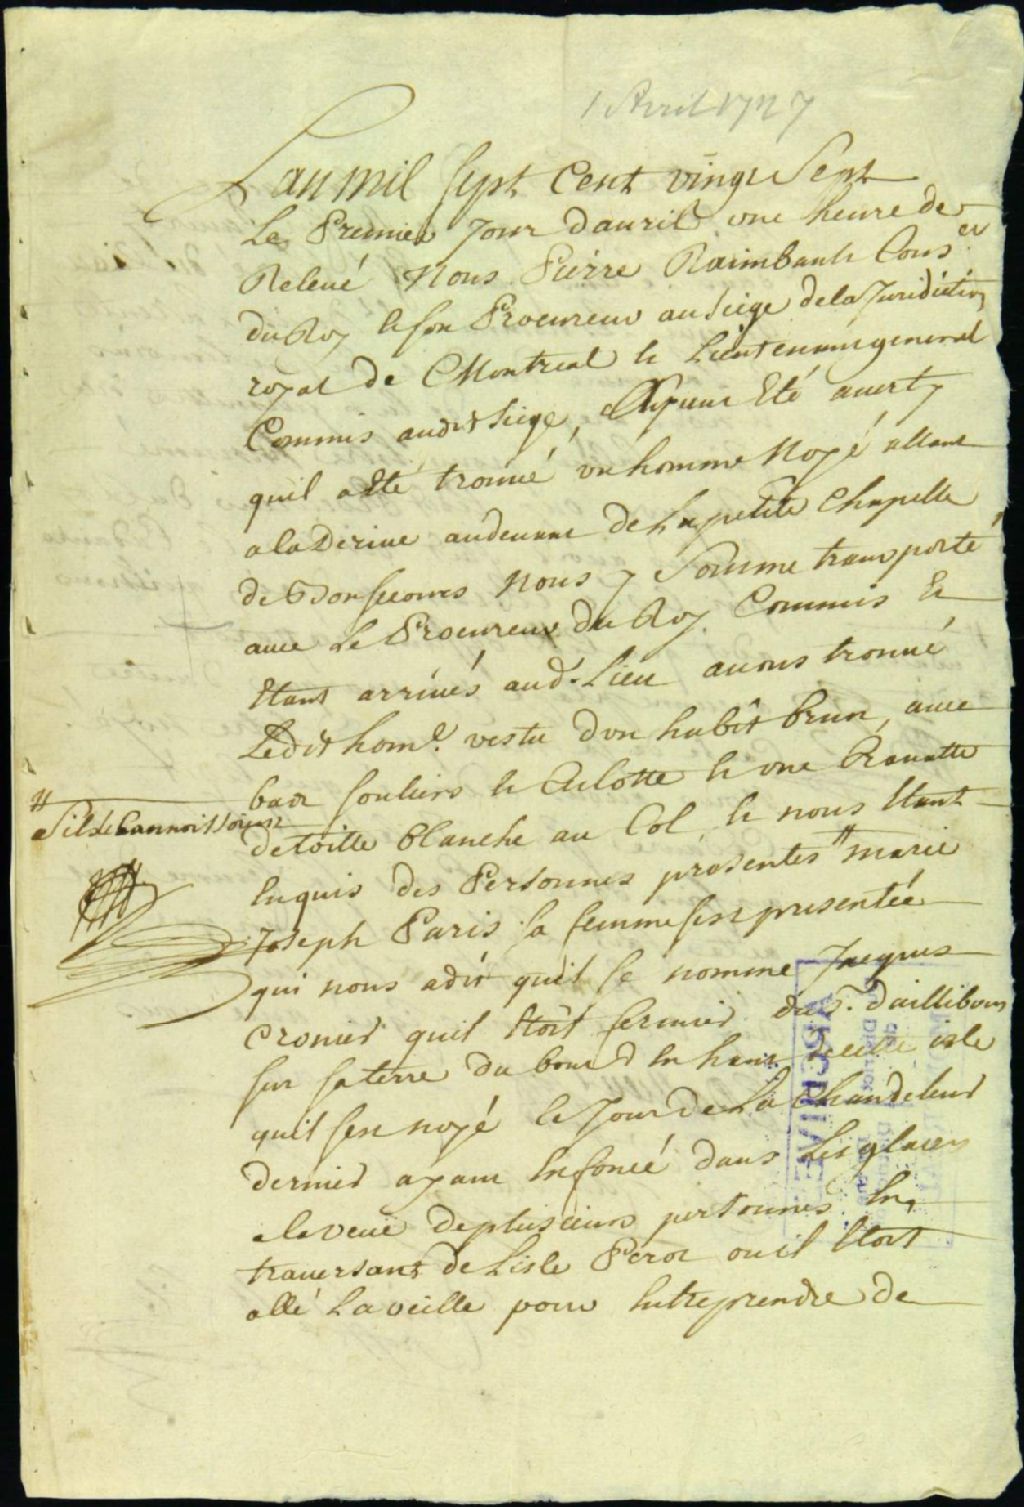 1 Avril 1727
Lan mil sept Cent vingt Sept
Le Premier Jour dauril une heure de
Releué Nous Pierre Raimbault Cons.er
du Roy & son Procureur au siege de la Juridiction
royal de Montreal & Lieutenant general
Commis audit siege, Ayant Eté auerty
quil a Eté trouué un homme Noyé allant
a la Deriue audeuant de La petite Chapelle
de Bonsecours Nous y Somme transporté
auec Le Procureur du Roy Commis Et
Etant arriués aud. Lieu auons trouué
Ledit hom.e vestu dun habit brun, auec
bas souliers & Culotte & une Crauatte
// Sil le Connoissoient
de toille blanche au Col, & nous Etant
Enquis des Personnes presentes // marie
Joseph Paris sa femme sest presentée
qui nous a dit quil se nomme Jacques
Cronier quil Etoit fermier du S.r Daillibous
sur sa terre du bout den haut de cette isle
quil sest noyé le Jour de La Chandeleur
dernier ayant Enfoncé dans Les glaces
a la veue de plusieurs personnes En
trauersant de Lisle Perot ou il Etoit
allé La veille pour Entreprendre de
ARCHIVES